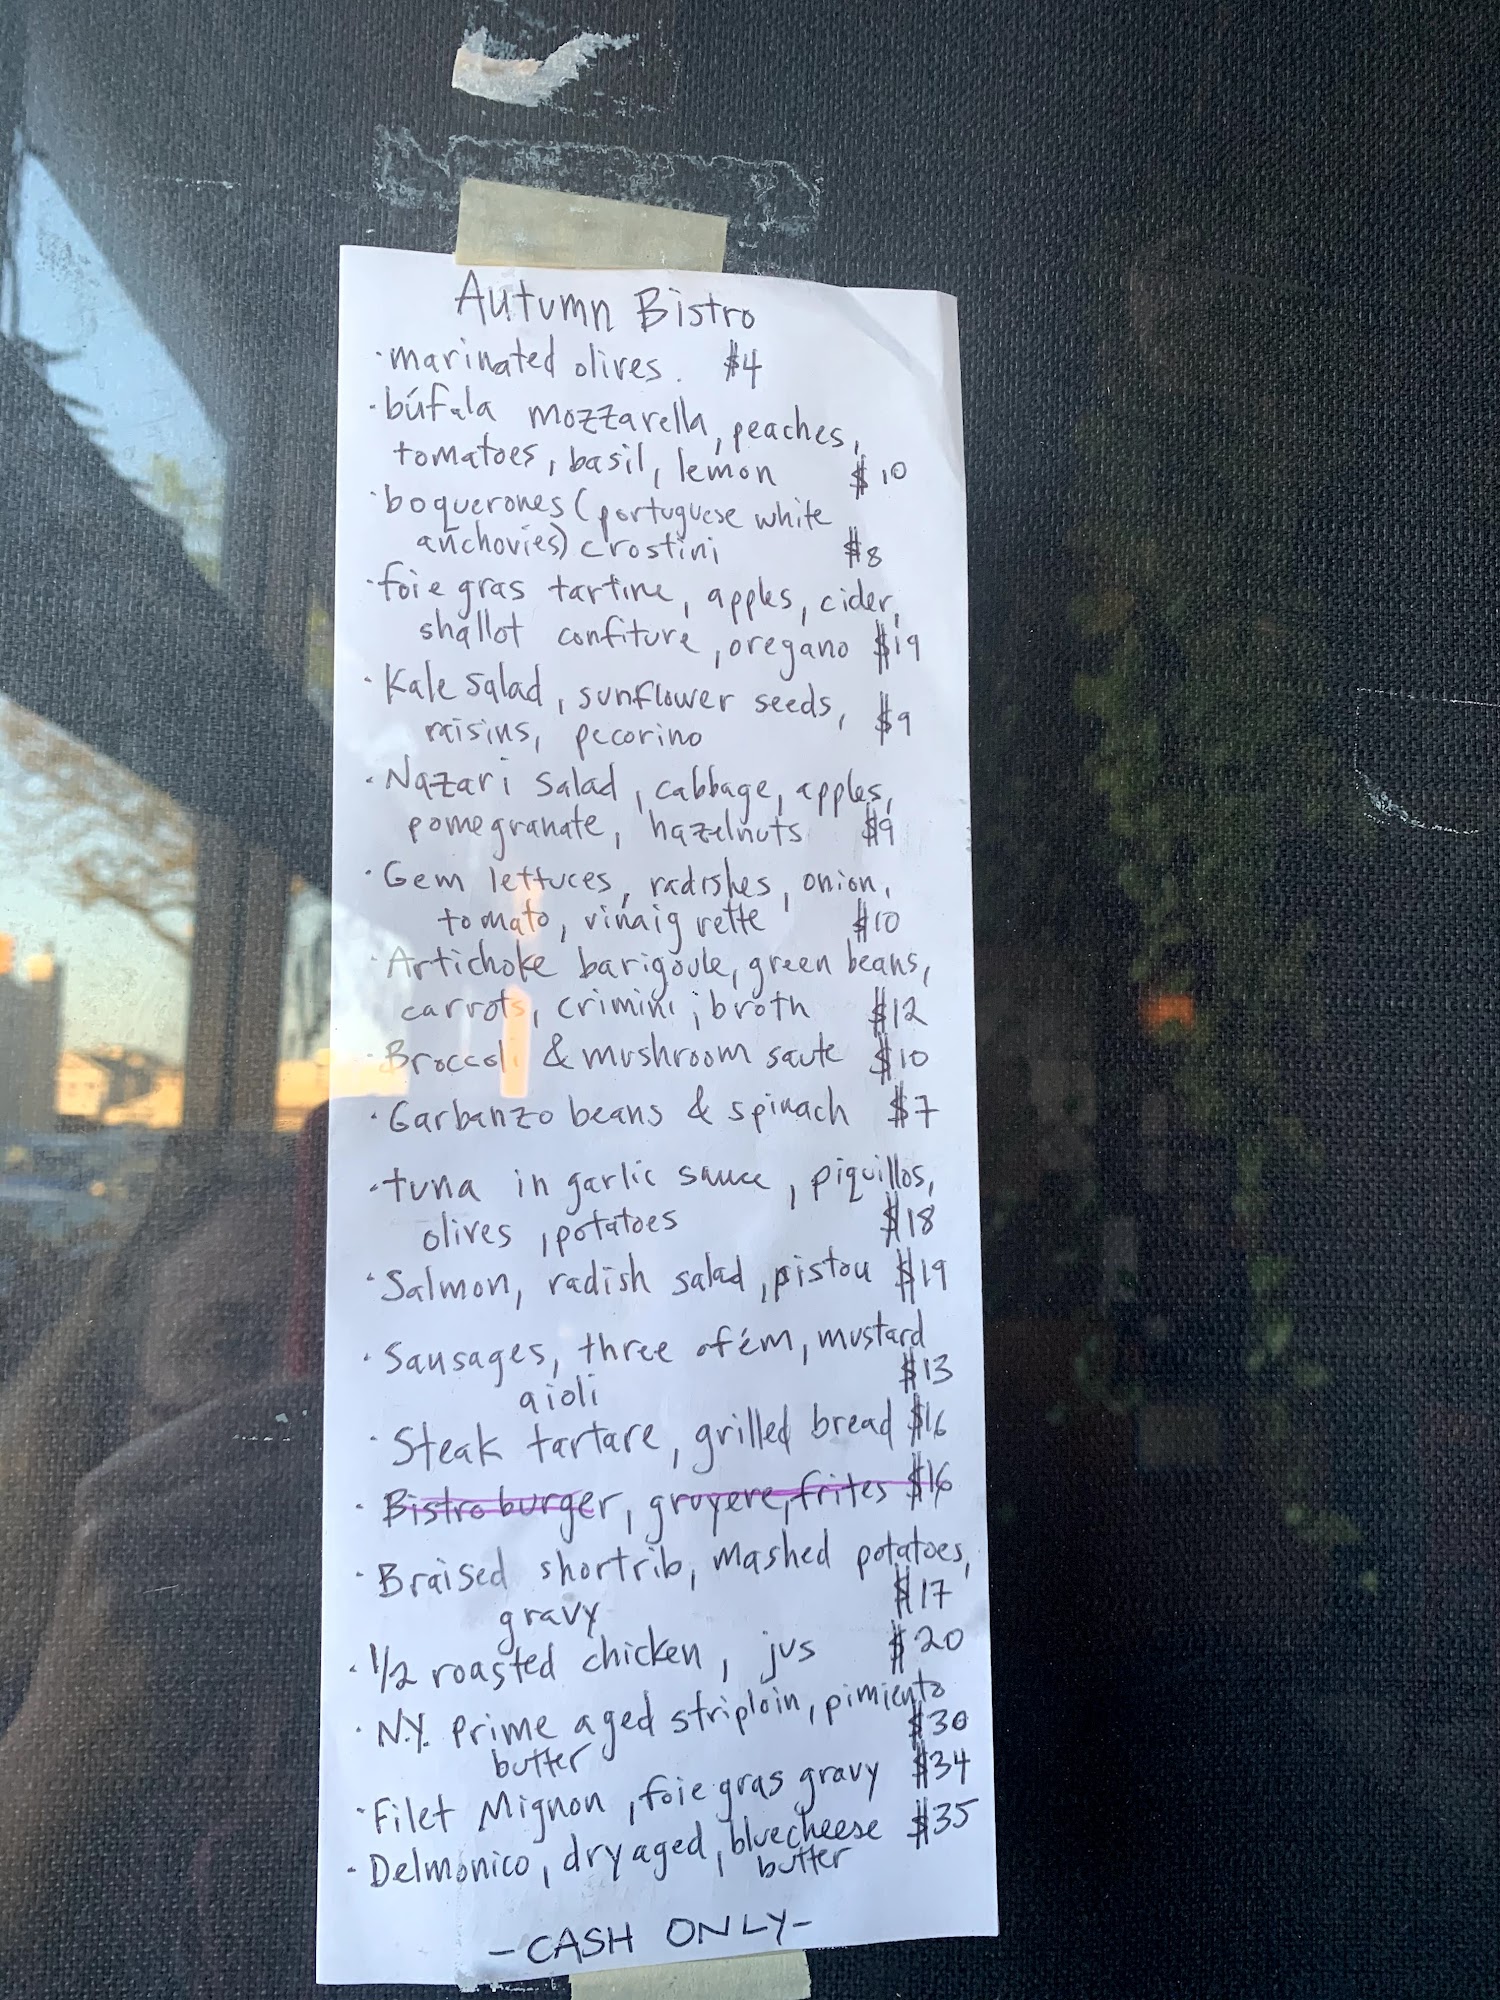 Autumn Bistro
· marinated olives. $4
· búfala mozzarella, peaches,
tomatoes, basil, lemon $10
· boquerones (portuguese white
anchovies) crostini $8
· foie gras tartine, apples, cider,
shallot confiture, oregano $19
· Kale salad, sunflower seeds, $9
raisins, pecorino
· Nazari salad, cabbage, apples,
pomegranate, hazelnuts $9
· Gem lettuces, radishes, onion,
tomato, vinaigrette $10
· Artichoke barigoule, green beans,
carrots, crimini, broth $12
· Broccoli & mushroom saute $10
· Garbanzo beans & spinach $7
· tuna in garlic sauce, piquillos,
olives, potatoes $18
· Salmon, radish salad, pistou $19
· Sausages, three of ém, mustard
aioli $13
· Steak tartare, grilled bread $16
· Bistro burger, gruyere, frites $16
· Braised shortrib, mashed potatoes,
gravy $17
· 1/2 roasted chicken, jus $20
· N.Y. prime aged striploin, pimiento
butter $30
· Filet Mignon, foie gras gravy $34
· Delmonico, dry aged, bluecheese $35
butter
- CASH ONLY -